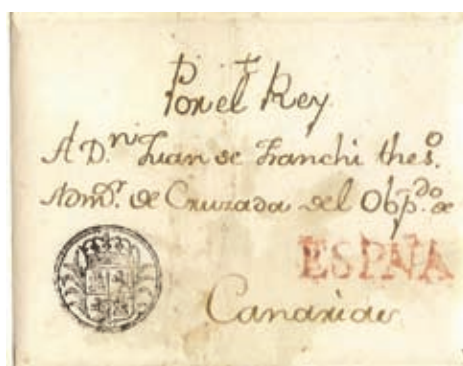 Por el Rey
A D.n Juan de Franchi theso.
Admor. de Cruzada del Obpdo. de
ESPAÑA
Canarias